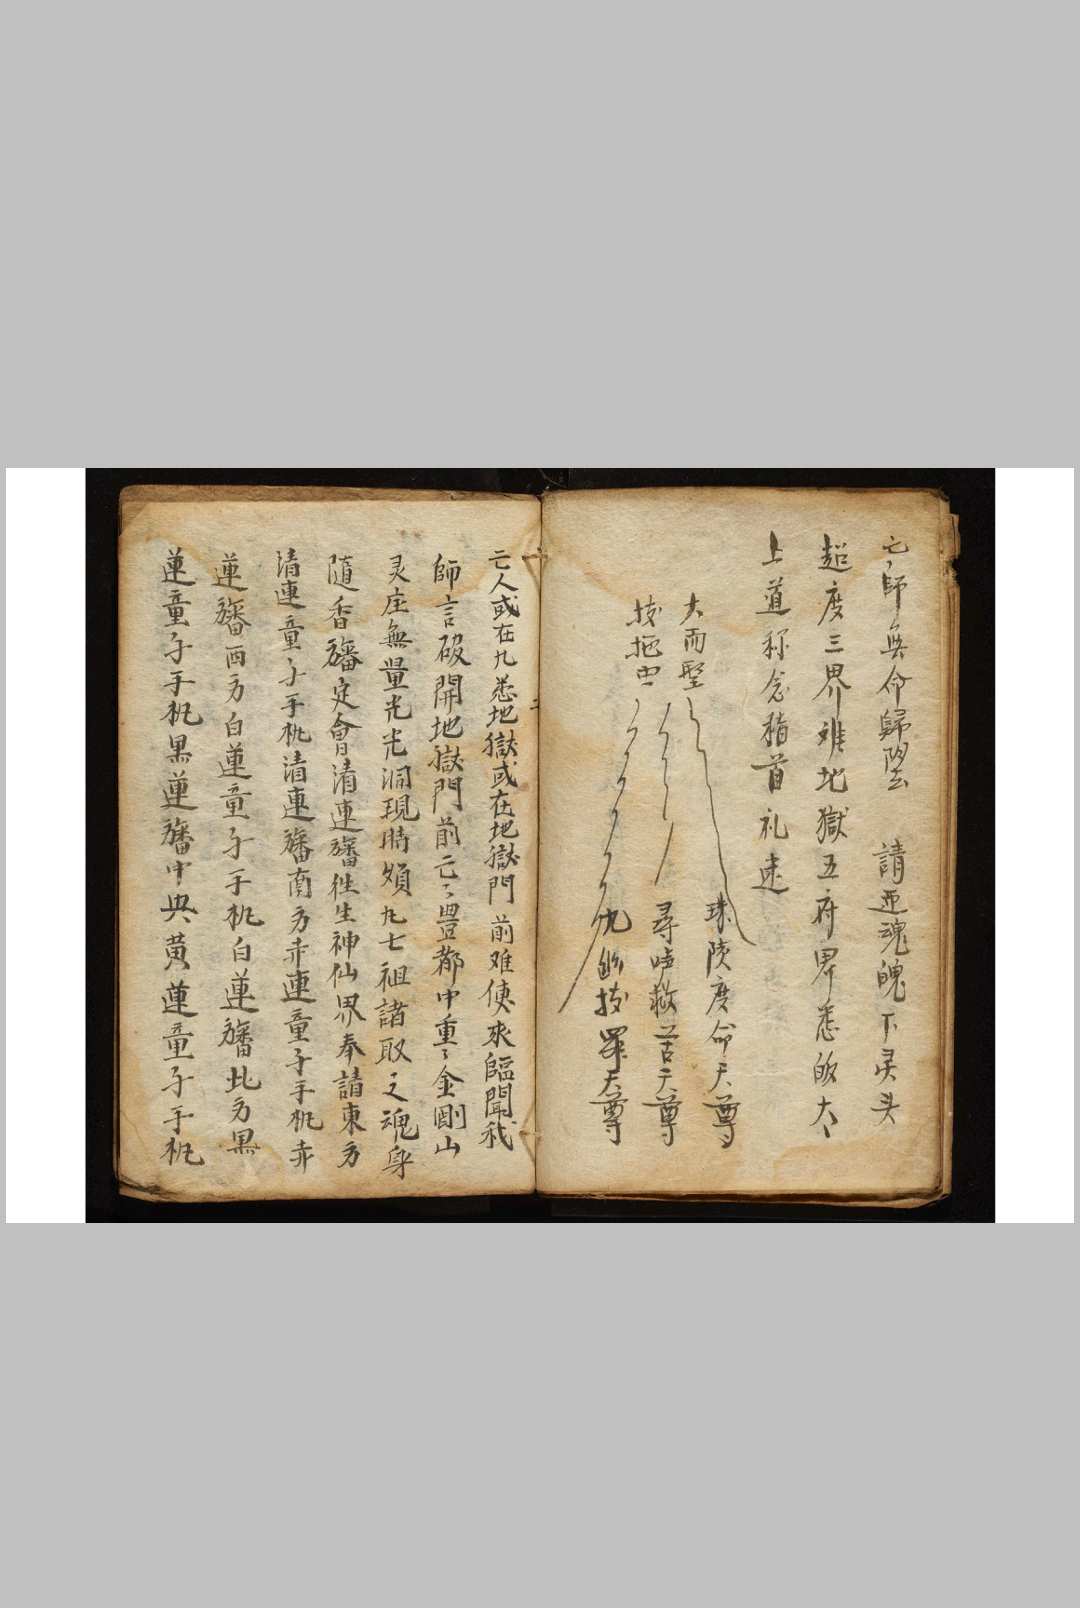 亡師無命歸陰　請亞魂魄下灵头
超度三界难地獄五府界悉皈太
上道称念稽首礼
大而聖
珠陵度命天尊
尋声救苦天尊
九幽拔罪天尊
三
亡人或在九悉地獄或在地獄門前难使來臨聞我
師言破開地獄門前亡々豊都中重々金剛山
灵庄無量光光洞現時頫九七祖諸取之魂身
隨香旛定會清連旛徃生神仙界奉請東方
清連童子手机清連旛南方赤連童子手机赤
蓮旛西方白蓮童子手机白蓮旛北方黒
蓮童子手机黒蓮旛中央黄蓮童子手机